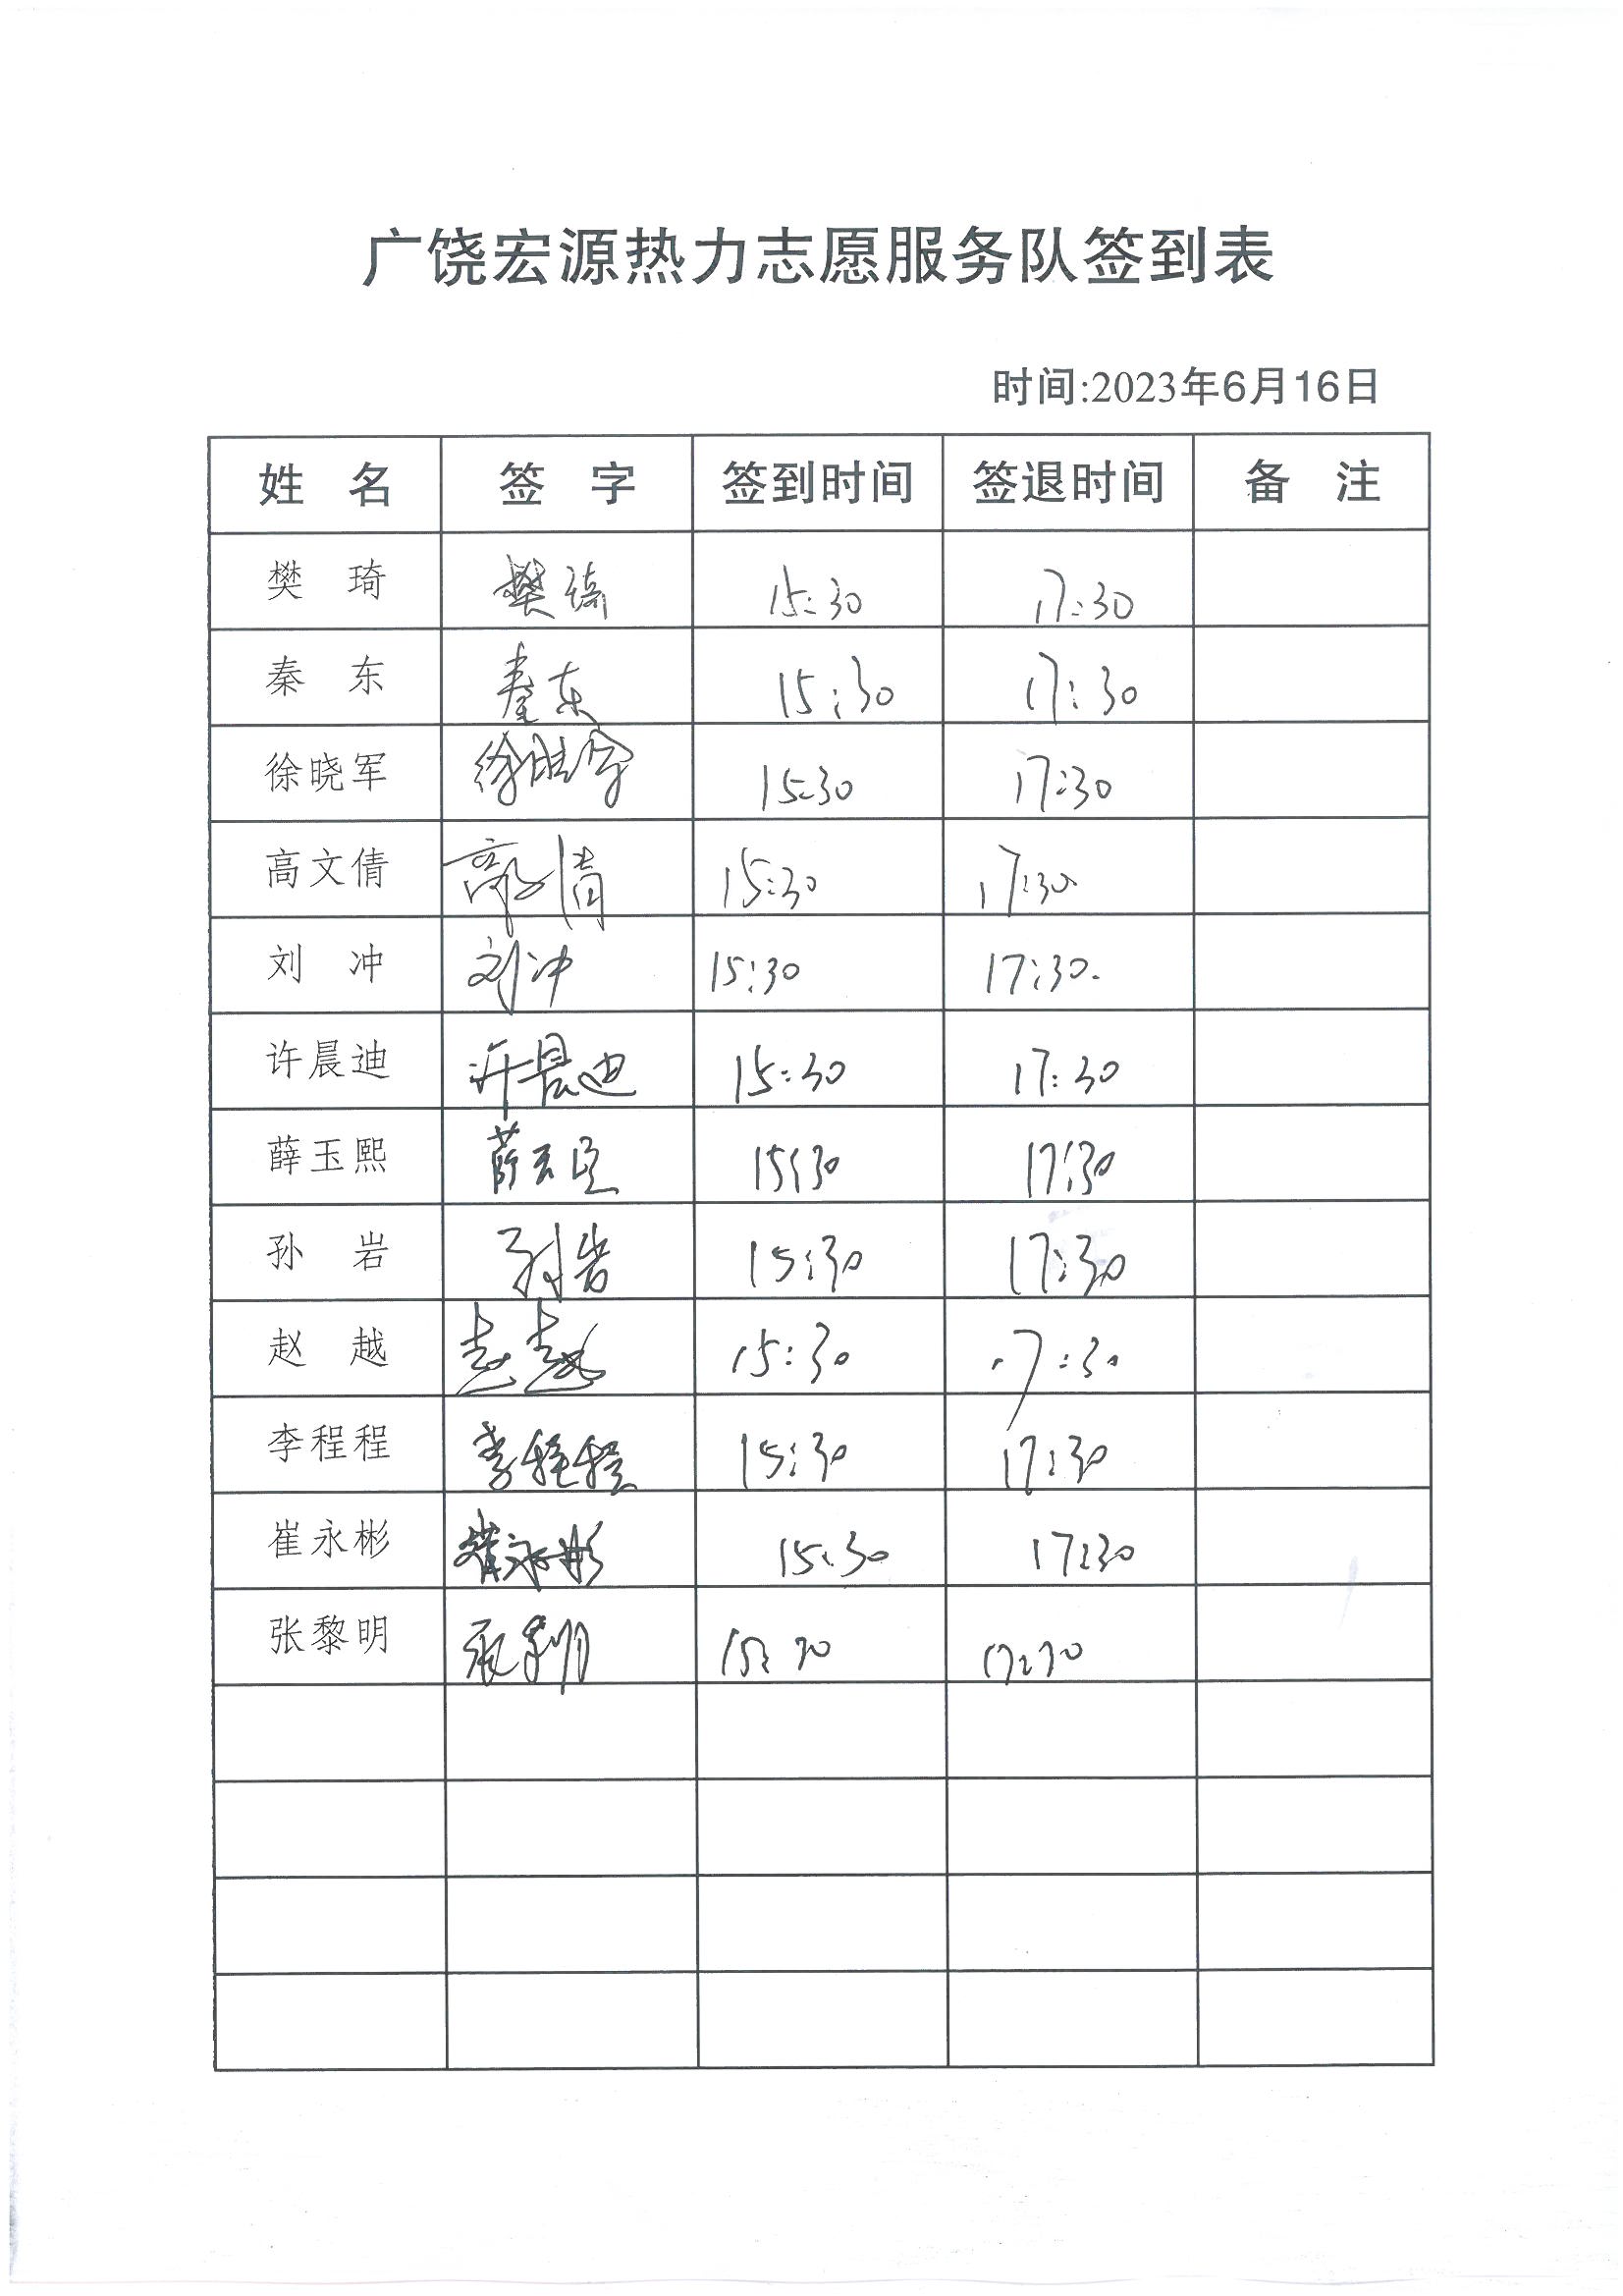 广饶宏源热力志愿服务队签到表
时间:2023年6月16日
姓 名 签 字 签到时间 签退时间 备 注
樊 琦 樊琦 15:30 17:30
秦 东 秦东 15:30 17:30
徐晓军 徐晓军 15:30 17:30
高文倩 高文倩 15:30 17:30
刘 冲 刘冲 15:30 17:30.
许晨迪 许晨迪 15:30 17:30
薛玉熙 薛玉熙 15:30 17:30
孙 岩 孙岩 15:30 17:30
赵 越 赵越 15:30 17:30
李程程 李程程 15:30 17:30
崔永彬 崔永彬 15:30 17:30
张黎明 张黎明 15:30 17:30